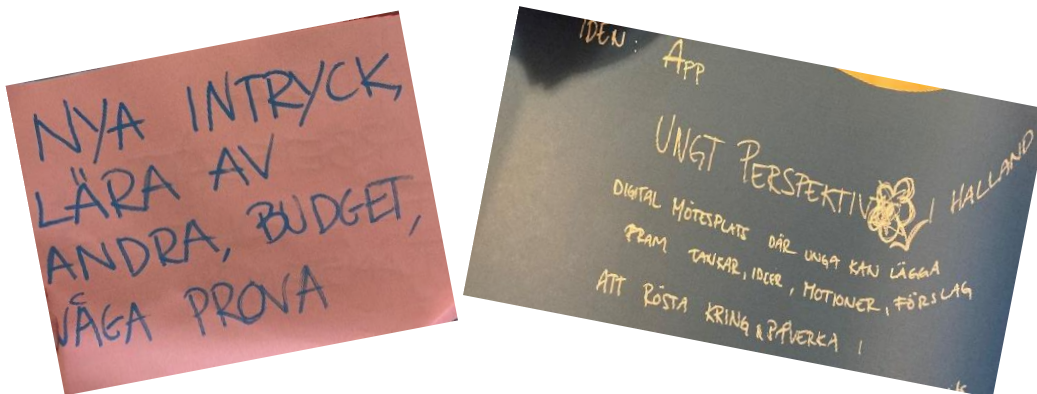 NYA INTRYCK,
LÄRA AV
ANDRA, BUDGET,
VÅGA PROVA
IDEN: APP
UNGT PERSPEKTIV I HALLAND
DIGITAL MÖTESPLATS DÄR UNGA KAN LÄGGA
FRAM TANKAR, IDEER, MOTIONER, FÖRSLAG
ATT RÖSTA KRING & PÅVERKA!